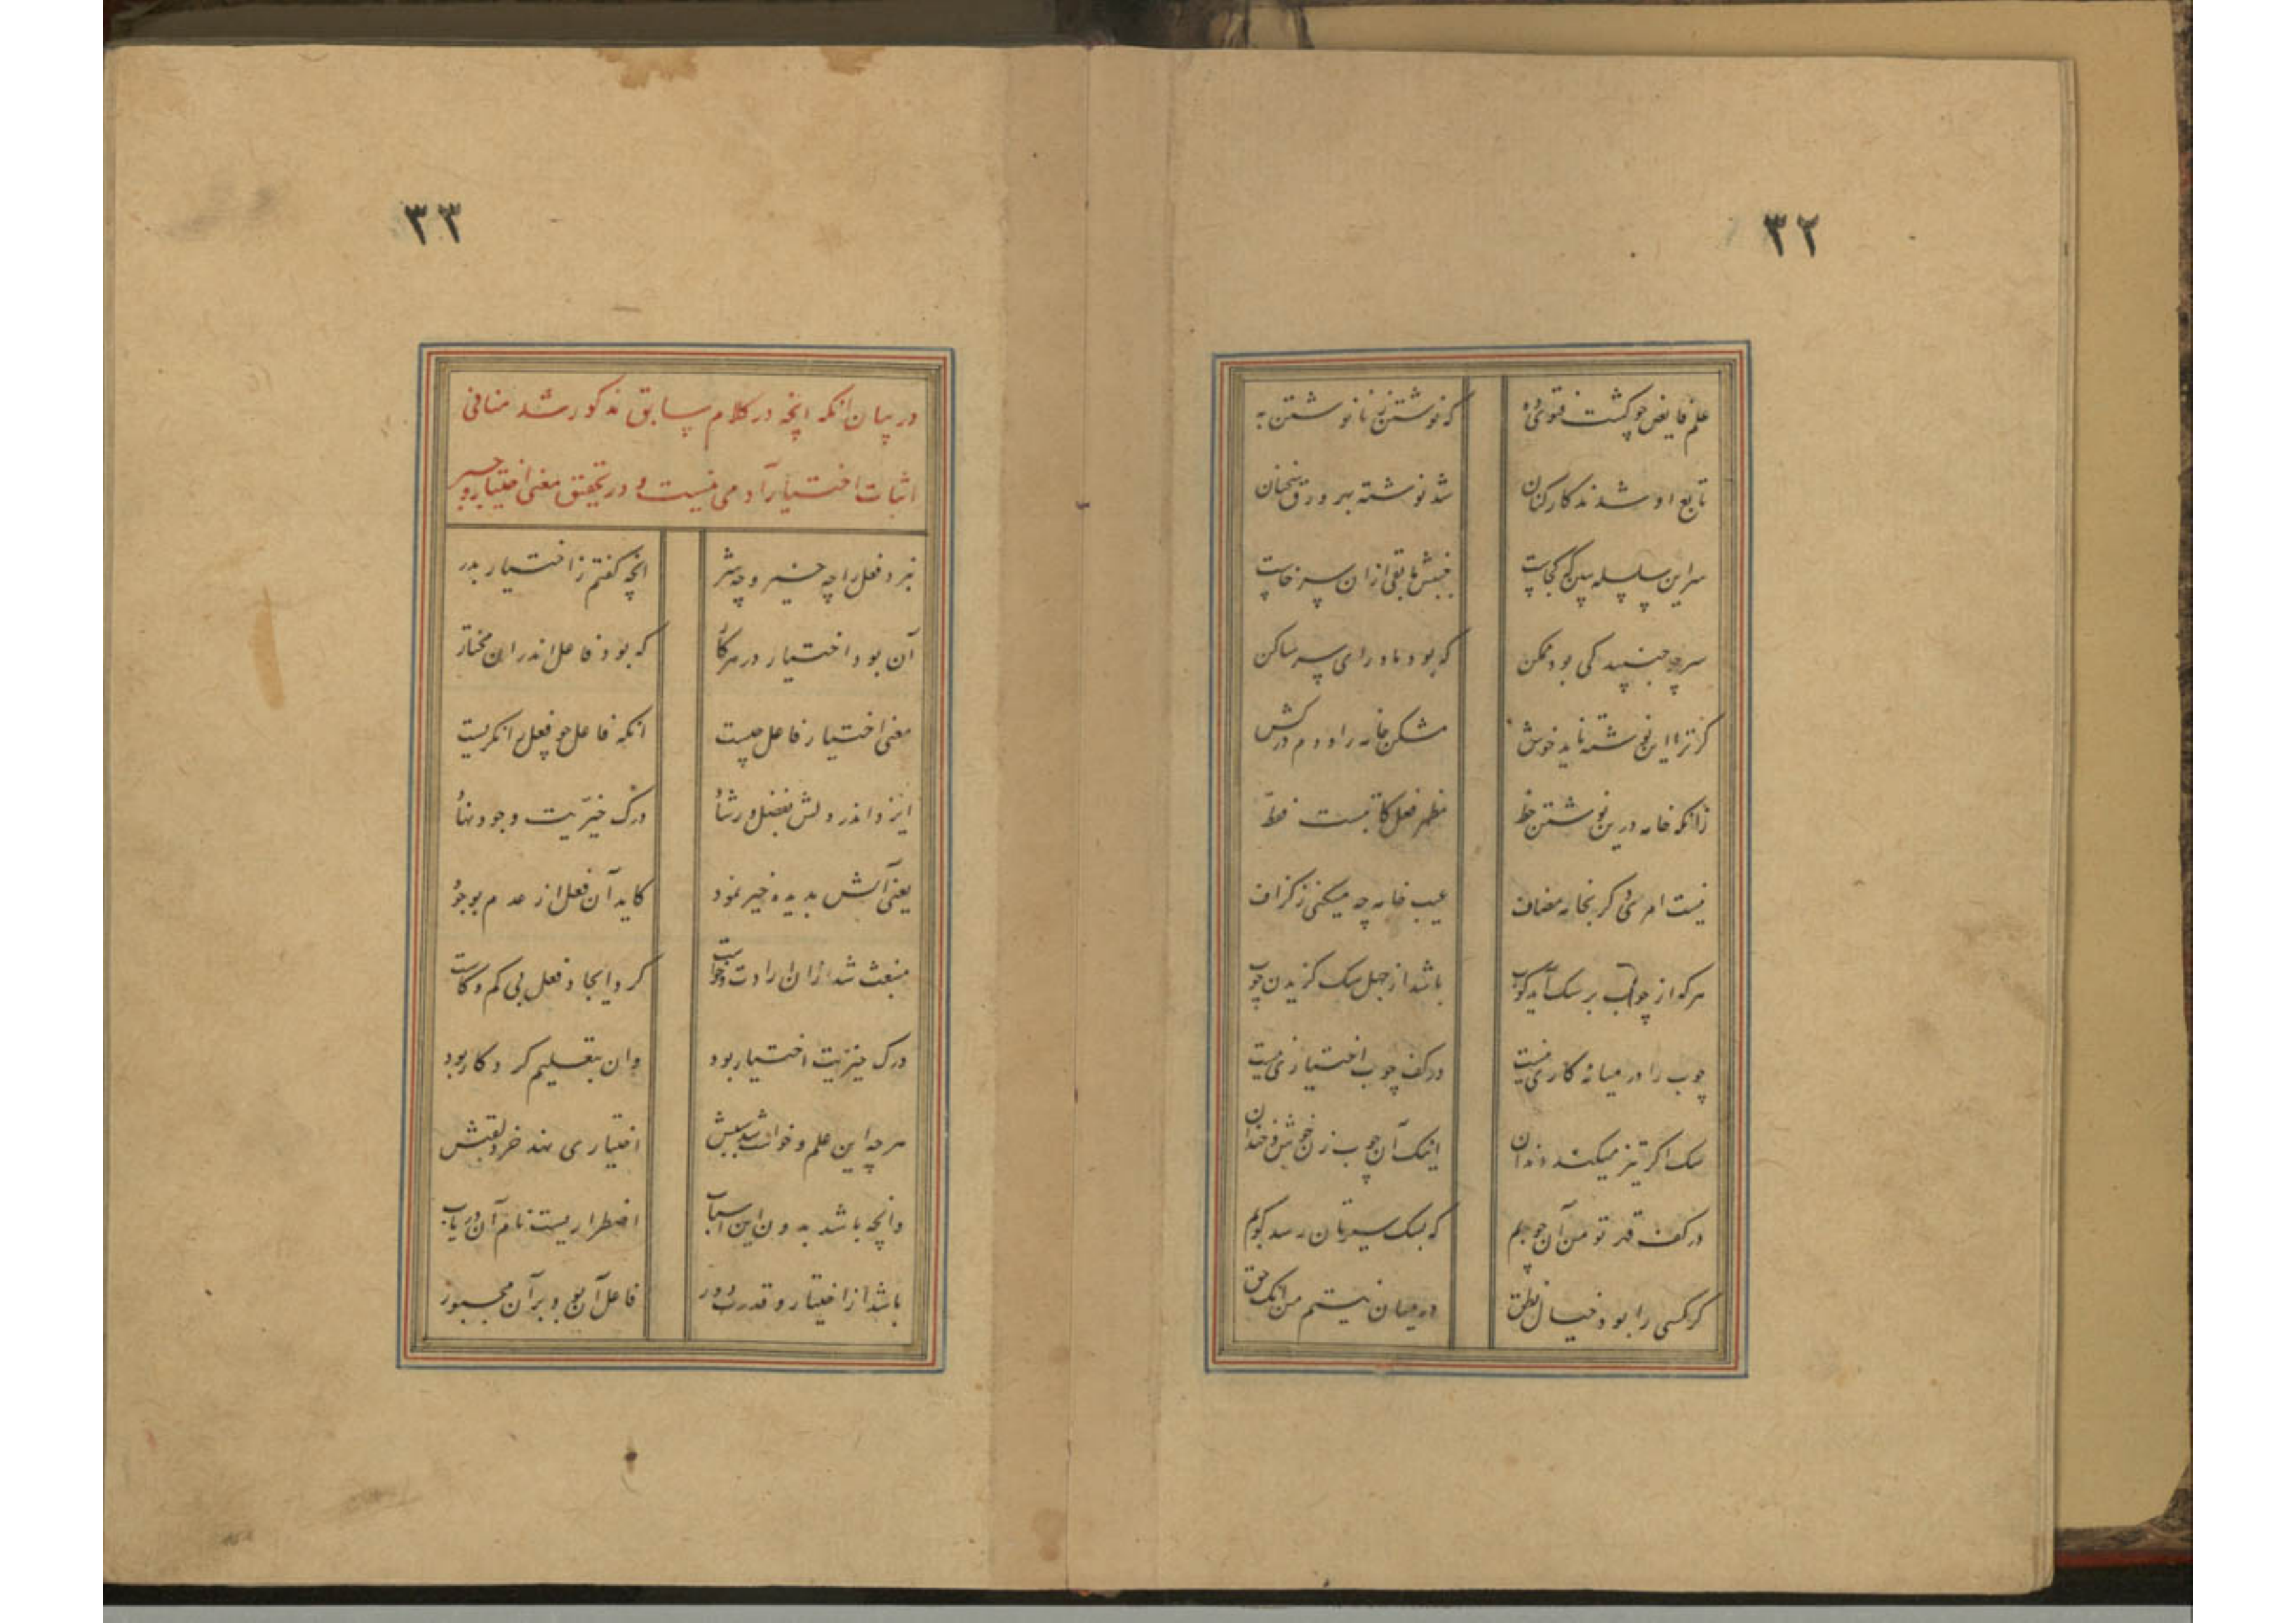 ۳۲
علم فایض چو گشت فتوی ده
که نوشتن ز نانوشتن به
تابع او شدند کارکنان
شد نوشته بر ورق سخنان
سر این سلسله ببین که کجاست
جنبش مابقی از آن سر خاست
سر چو جنبید کی بود ممکن
که بود ماورای سر ساکن
گر ترا این نوشته ناید خوش
مشکن خامه را و دم درکش
زانکه خامه درین نوشتن خط
مظهر فعل کاتبست فقط
نیست امری دگر بخامه مضاف
عیب خامه چه میکنی ز گزاف
هر که از چوب بر سگ آید کوب
باشد از جهل سگ گزیدن چوب
چوب را در میانه کاری نیست
در کف چوب اختیاری نیست
سگ اگر تیز میکند دندان
اینک آن چوب زن
در کف قدرت تو من آن چوبم
که بسگ سیرتان رسد کوبم
گر کسی را بود خیال نطق
در میان نیستم من اینک حق
۳۳
در بیان انکه انچه در کلام سابق مذکور شد منافی
اثبات اختیار آدمی نیست و در تحقیق معنی اختیار و جبر
نبرد فعل را چه خیر و چه شر
انچه گفتم ز اختیار بدر
آن بود اختیار در هر کار
که بود فاعل اندران مختار
معنی اختیار فاعل چیست
انکه فاعل چو فعل را نگریست
ایزد اندر دلش بفضل و رشاد
درک خیریت وجود نهاد
یعنی آنش بدیده خیر نمود
کاید آن فعل از عدم بوجود
منبعث شد ازان ارادت و خواست
کرد ایجاد فعل بی کم و کاست
درک خیریت اختیار بود
وان بتعلیم کردکار بود
هر چه این علم و خواست شد سببش
اختیاری نهد خرد لقبش
وانچه باشد بدون این اسباب
اضطراریست نام آن دریاب
باشد از اختیار و قدرت دور
فاعل آن بود بر آن مجبور